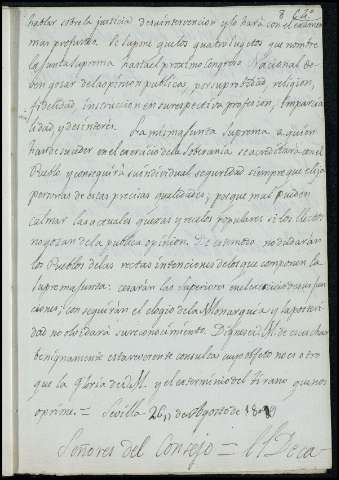 8
hablar sobre la justicia desu intervencion y lo hará con el examen
mas profundo. Se supone quelos quatro sugetos que nombre
la Junta Suprema hasta el proximo Congreso Nacional de-
ven gozar dela opinion publica por su probidad, religion,
fidelidad, instruccion en su respectiva profesion, imparcia-
lidad, y desinteres. La misma Junta Suprema à quien
han de suceder en el exercicio dela Soberania se acreditará con el
Pueblo y conseguirá su individual seguridad siempre que elija
personas de estas precisas qualidades; porque mal pueden
calmar las actuales quexas y recelos populares si los electos
no gozan dela publica opinion. De este modo, no dudarán
los Pueblos delas rectas intenciones delos que componen la
Suprema Junta: cesarán las Superiores en el exercicio de sus fun-
ciones: conseguirán el elogio dela Monarquia y la posteri-
dad no olvidará su reconocimiento. Dignese V.M. de escuchar
benignamente esta reverente consulta cuyo objeto no es otro
que la Gloria de V.M. y el exterminio del tirano que nos
oprime. = Sevilla 26,, de Agosto de 1809
Señores del Consejo =